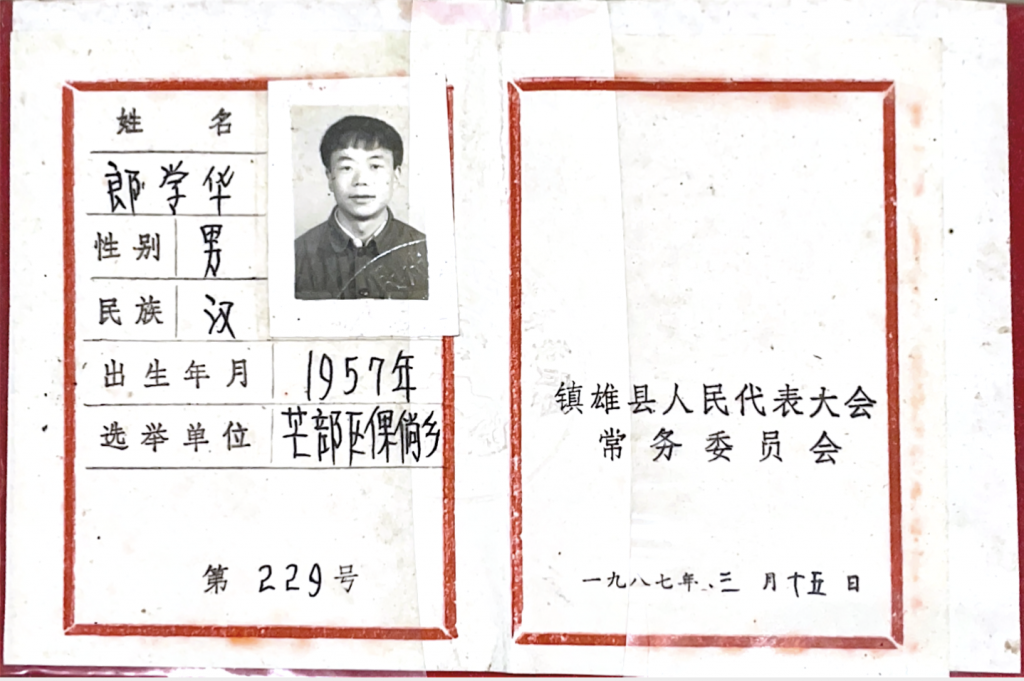 姓 名
郎学华
性别 男
民族 汉
出生年月 1957年
选举单位 芒部区倮倘乡
第 229 号
镇雄县人民代表大会
常务委员会
一九八七年、三月十五日